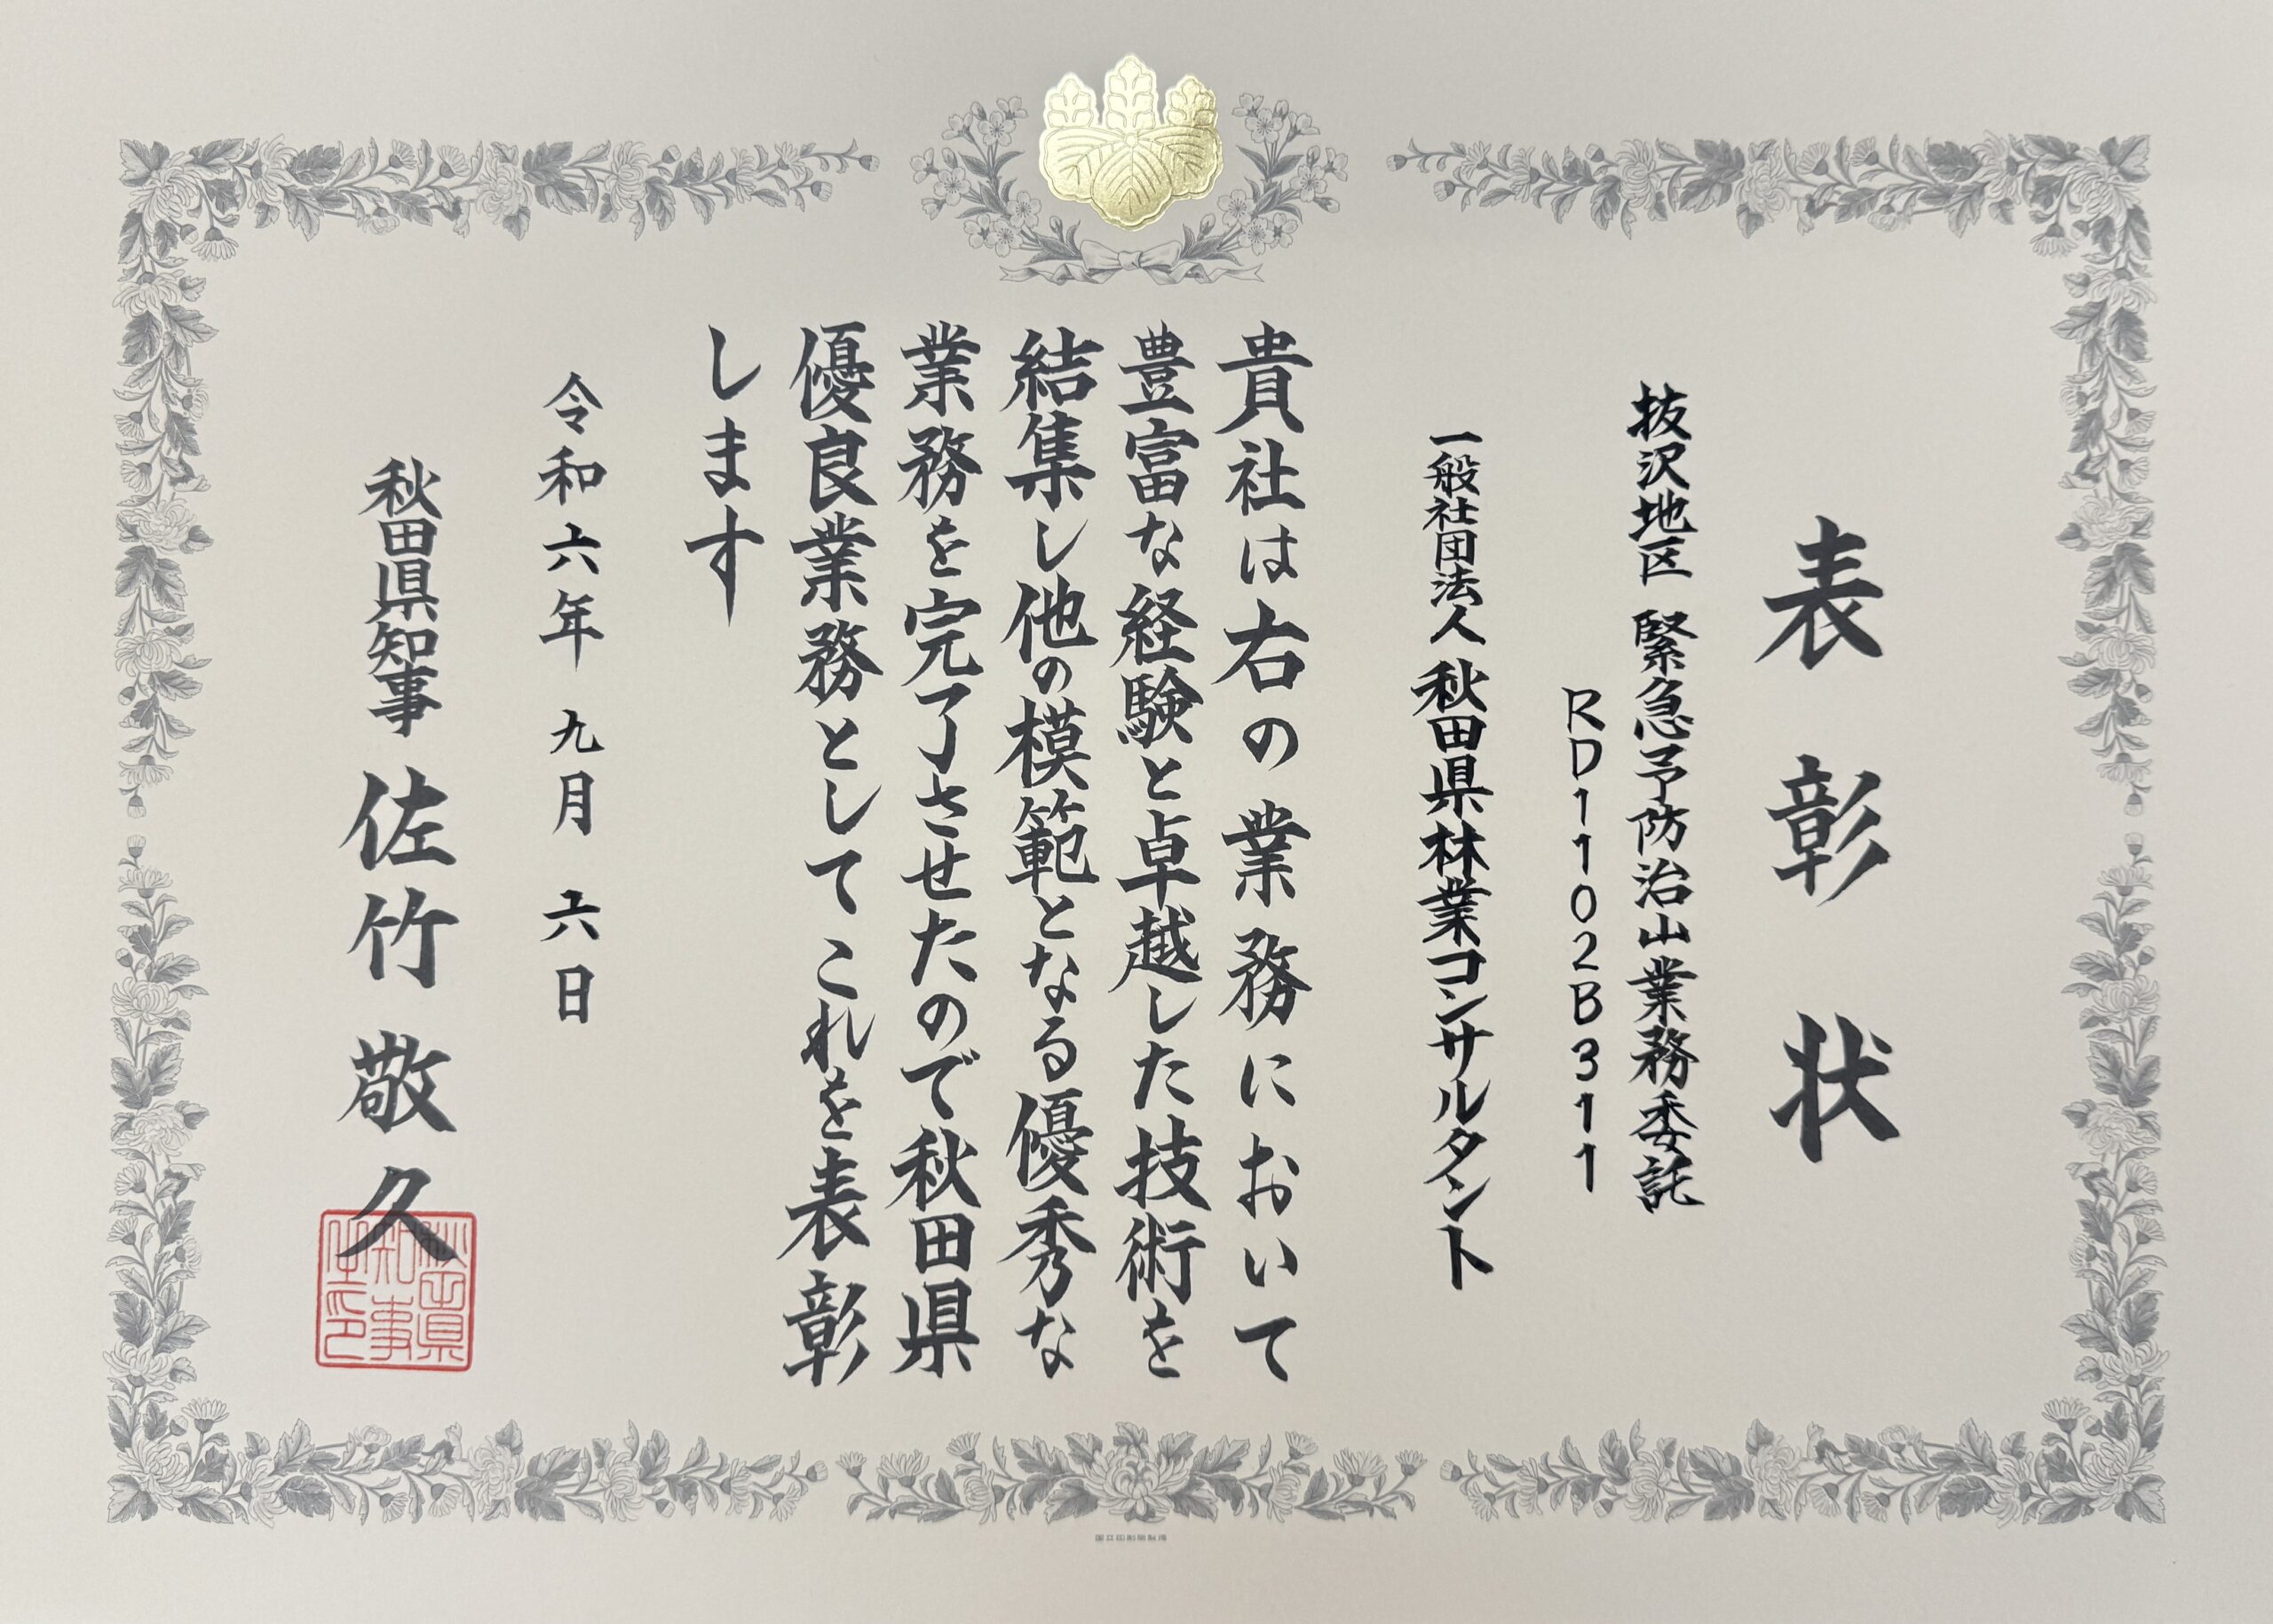 表彰状
抜沢地区 緊急予防治山業務委託
RD1102B311
一般社団法人 秋田県林業コンサルタント
貴社は右の業務において
豊富な経験と卓越した技術を
結集し他の模範となる優秀な
業務を完了させたので秋田県
優良業務としてこれを表彰
します
令和六年 九月 六日
秋田県知事 佐竹敬久
秋田県
知事
之印
国立印刷局製造